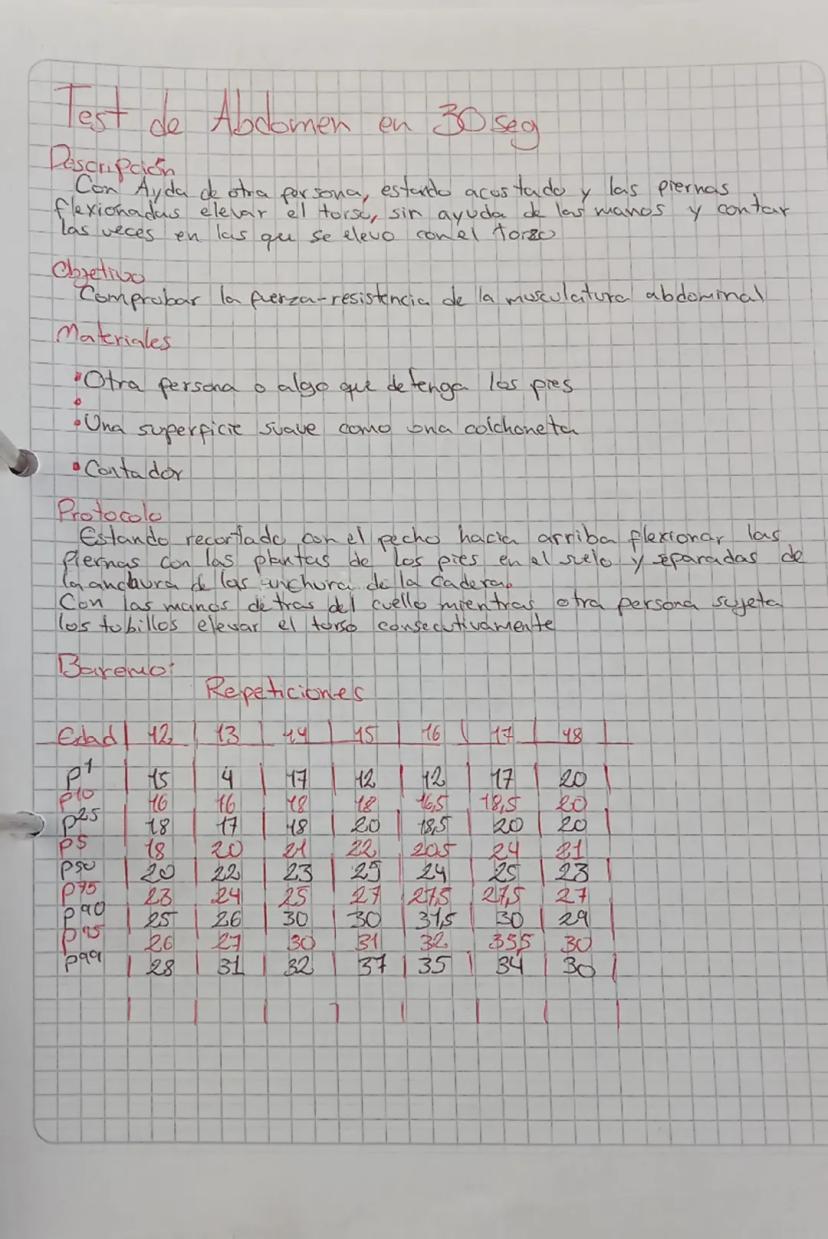 Test de Abdomen en 30 seg
Descripción
Con Ayda de otra persona, estando acostado y las piernas
flexionadas elevar el torso, sin ayuda de las manos y contar
las veces en las que se elevo con el torzo
Objetivo
Comprobar la fuerza-resistencia de la musculatura abdominal
Materiales
•Otra persona o algo que detenga los pies
•Una superficie suave como una colchoneta
•Contador
Protocolo
Estando recortado con el pecho hacia arriba flexionar las
piernas con las plantas de los pies en al suelo y separadas de
la anchura de las anchura de la cadera.
Con las manos detras del cuello mientras otra persona sujeta
los tobillos elevar el torso consecutivamente
Baremo:
Repeticiones
Edad | 12 | 13 | 14 | 15 | 16 | 17 | 18 |
P1 15 | 4 | 17 | 12 | 12 | 17 | 20 |
P10 16 | 16 | 18 | 18 | 16,5 | 18,5 | 20
P25 18 | 17 | 18 | 20 | 18,5 | 20 | 20
P5 18 | 20 | 21 | 22 | 20,5 | 24 | 21
P50 20 | 22 | 23 | 25 | 24 | 25 | 23
P75 23 | 24 | 25 | 27 | 27,5 | 27,5 | 27
P90 25 | 26 | 30 | 30 | 31,5 | 30 | 29
P95 26 | 27 | 30 | 31 | 32 | 35,5 | 30
P99 28 | 31 | 32 | 37 | 35 | 34 | 30 |